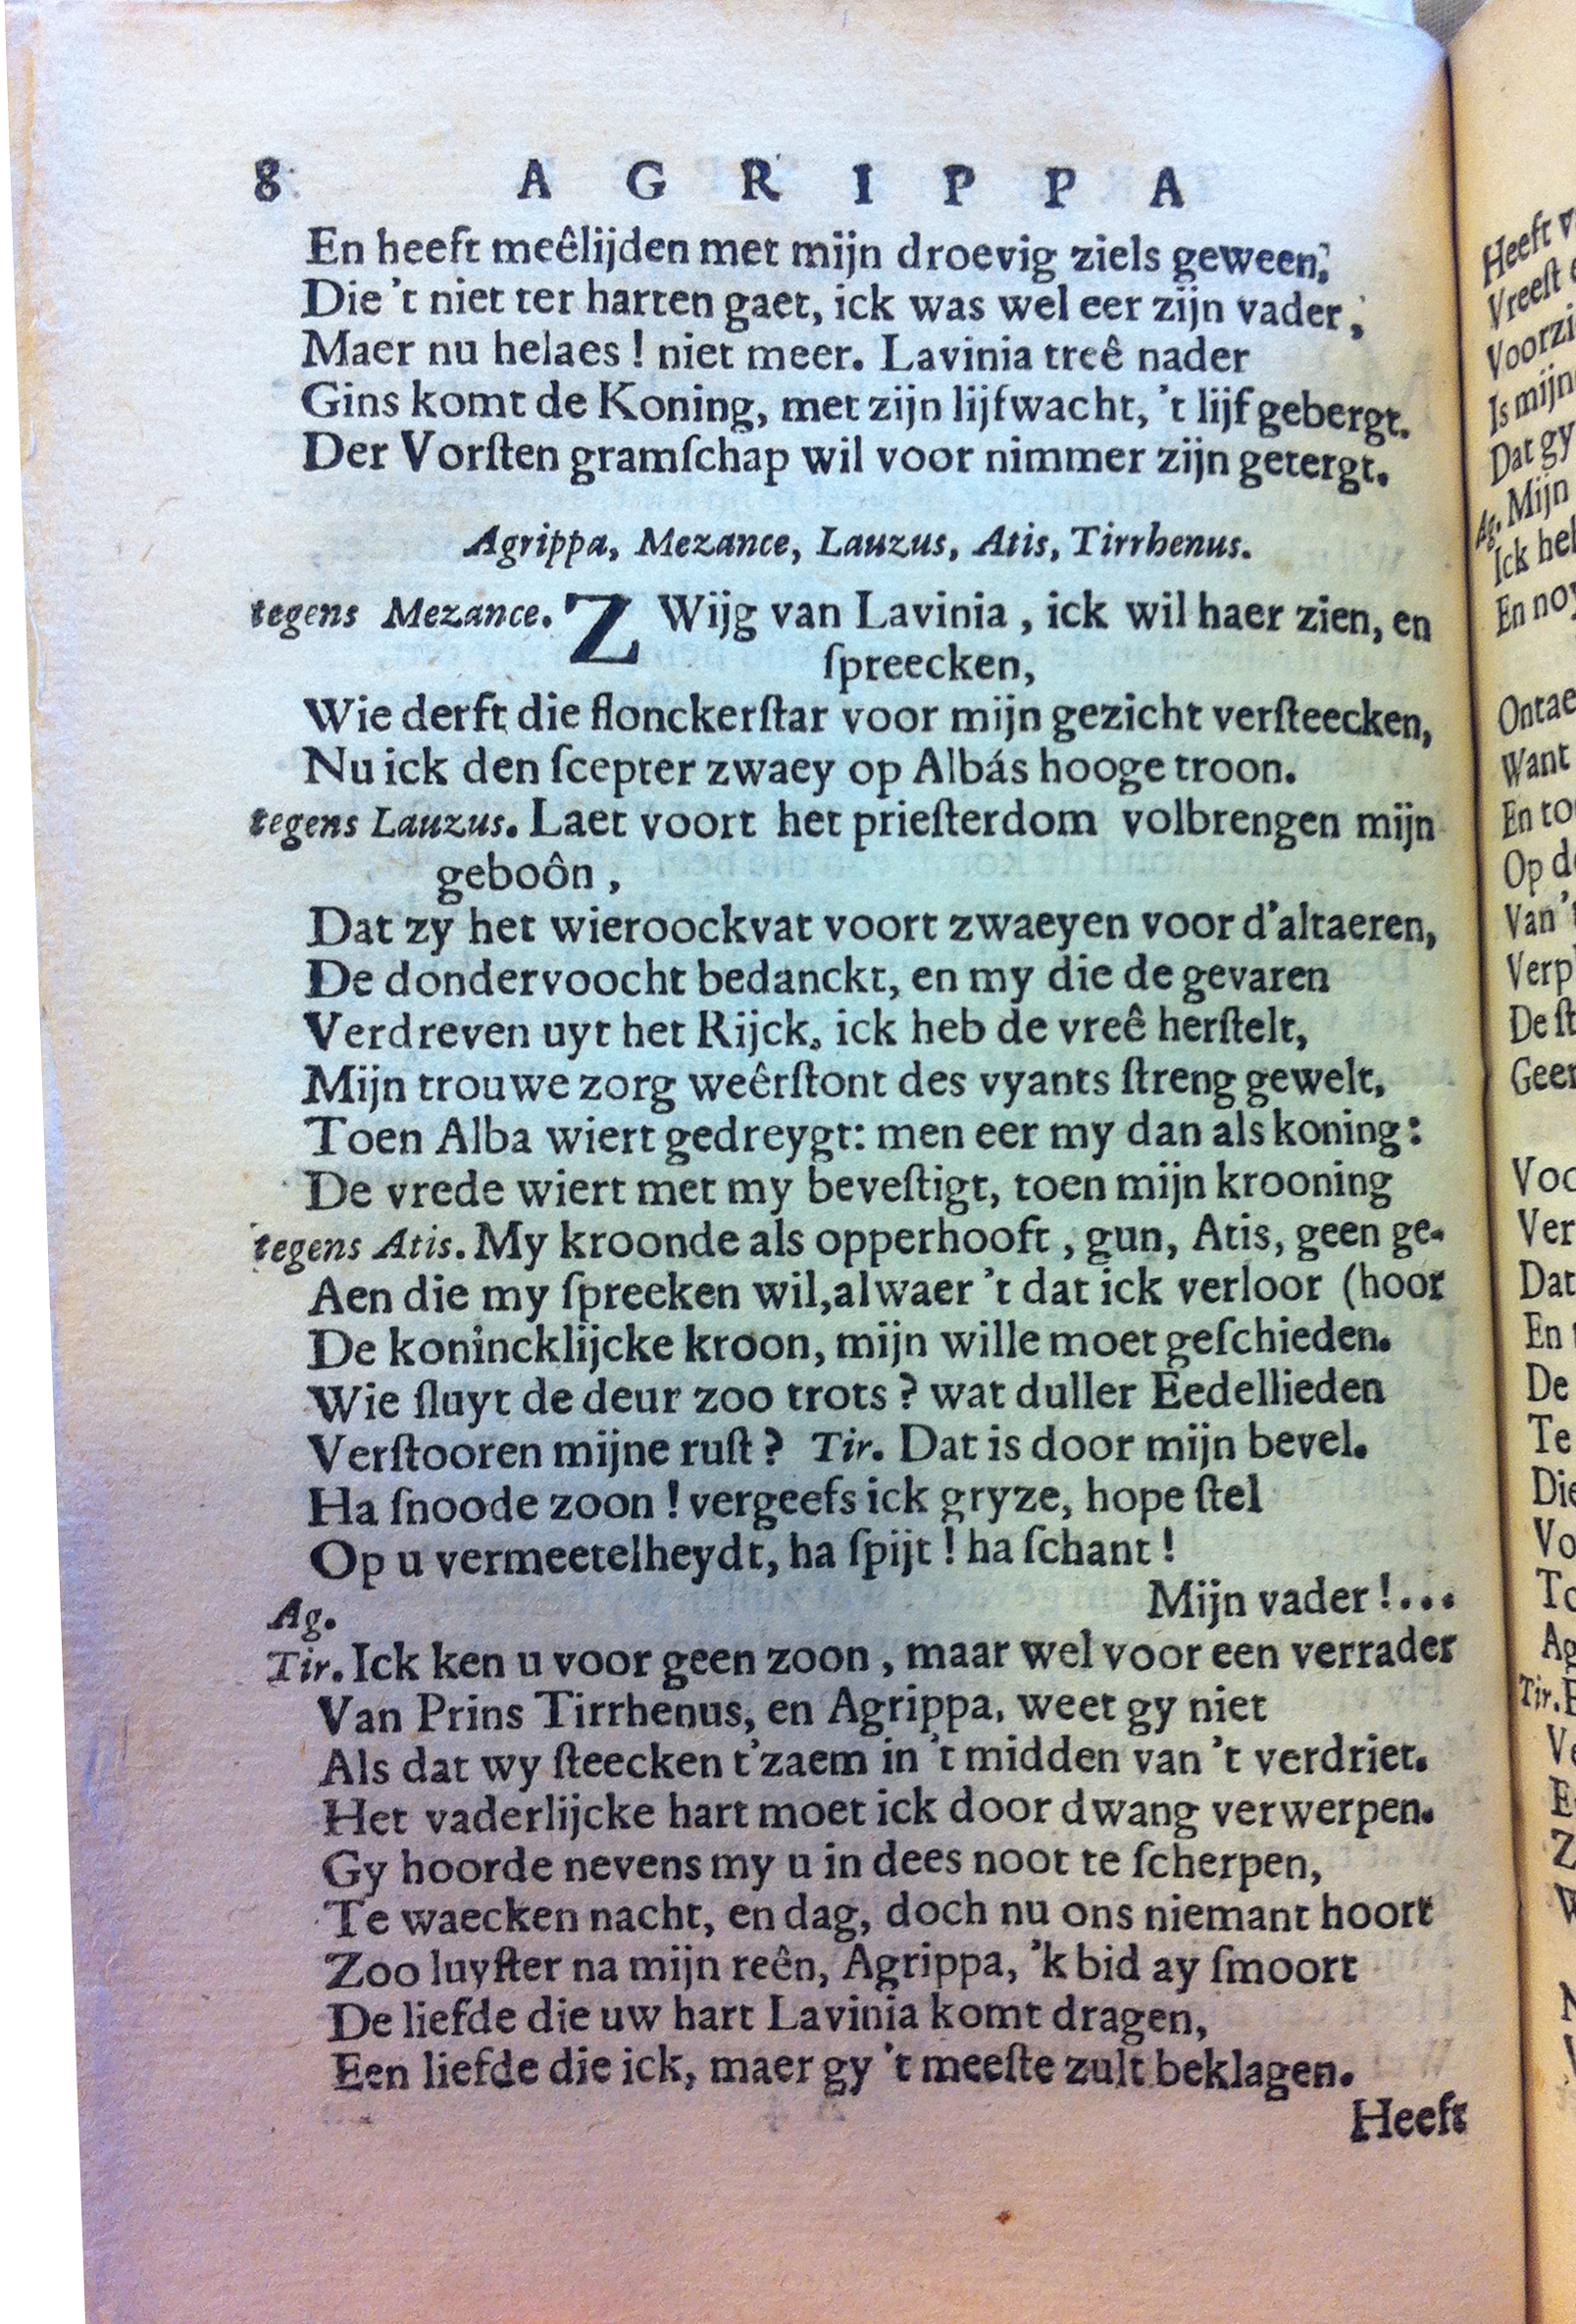 8 A G R I P P A
En heeft meêlijden met mijn droevig ziels geween,
Die 't niet ter harten gaet, ick was wel eer zijn vader,
Maer nu helaes! niet meer. Lavinia treê nader
Gins komt de Koning, met zijn lijfwacht, 't lijf gebergt.
Der Vorſten gramſchap wil voor nimmer zijn getergt.
Agrippa, Mezance, Lauzus, Atis, Tirrhenus.
tegens Mezance. ZWijg van Lavinia, ick wil haer zien, en
ſpreecken,
Wie derft die flonckerſtar voor mijn gezicht verſteecken,
Nu ick den ſcepter zwaey op Albás hooge troon.
tegens Lauzus. Laet voort het prieſterdom volbrengen mijn
geboôn,
Dat zy het wieroockvat voort zwaeyen voor d'altaeren,
De dondervoocht bedanckt, en my die de gevaren
Verdreven uyt het Rijck, ick heb de vreê herſtelt,
Mijn trouwe zorg weêrſtont des vyants ſtreng gewelt,
Toen Alba wiert gedreygt: men eer my dan als koning:
De vrede wiert met my beveſtigt, toen mijn krooning
tegens Atis. My kroonde als opperhooft, gun, Atis, geen ge-
Aen die my ſpreeken wil, al waer 't dat ick verloor (hoor
De konincklijcke kroon, mijn wille moet geſchieden.
Wie ſluyt de deur zoo trots? wat duller Eedellieden
Verſtooren mijne ruſt? Tir. Dat is door mijn bevel.
Ha ſnoode zoon! vergeefs ick gryze, hope ſtel
Op u vermeetelheydt, ha ſpijt! ha ſchant!
Ag. Mijn vader!...
Tir. Ick ken u voor geen zoon, maar wel voor een verrader
Van Prins Tirrhenus, en Agrippa, weet gy niet
Als dat wy ſteecken t'zaem in 't midden van 't verdriet.
Het vaderlijcke hart moet ick door dwang verwerpen.
Gy hoorde nevens my u in dees noot te ſcherpen,
Te waecken nacht, en dag, doch nu ons niemant hoort
Zoo luyſter na mijn reên, Agrippa, 'k bid ay ſmoort
De liefde die uw hart Lavinia komt dragen,
Een liefde die ick, maer gy 't meeſte zult beklagen.
Heeft
Heeft
Vreeſt
Voorzi
Is mijn
Dat gy
Ag. Mijn
Ick he
En noy
Ontae
Want
En to
Op d
Van 't
Verp
De ſt
Geer
Voo
Ver
Dat
En
De
Te
Die
Vo
To
Ag
Tir.